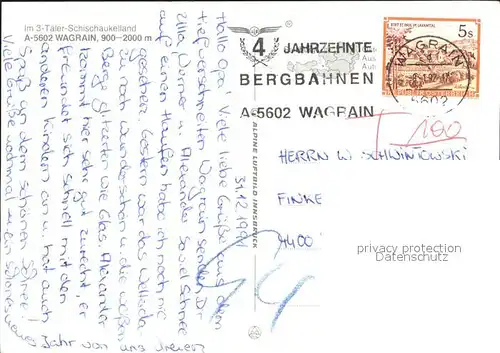 Im 3-Täler-Schischaukelland
A-5602 WAGRAIN, 900–2000 m
31.12.1991
Hallo Opa! Viele liebe Grüße aus dem
tief verschneiten Wagrain senden Dir
Ulla, Werner u. Alexander. So viel Schnee
auf einen Haufen habe ich noch nie
gesehen. Gestern war das Wetter
so wunderschön u. die weißen
Berge glitzerten wie Glas. Alexander
kommt hier sehr gut zurecht, er
freundet sich schnell mit den
anderen Kindern an u. hat auch
Spaß an dem schönen Schnee!
Viele Grüße nochmal u. ein
Jahr von uns dreien!
ALPINE LUFTBILD INNSBRUCK
4 JAHRZEHNTE
BERGBAHNEN
A-5602 WAGRAIN
WAGRAIN
5602
5s
T 100
HERRN W. SCHWINTOWSKI
FINKE
4400
privacy protection
Datenschutz